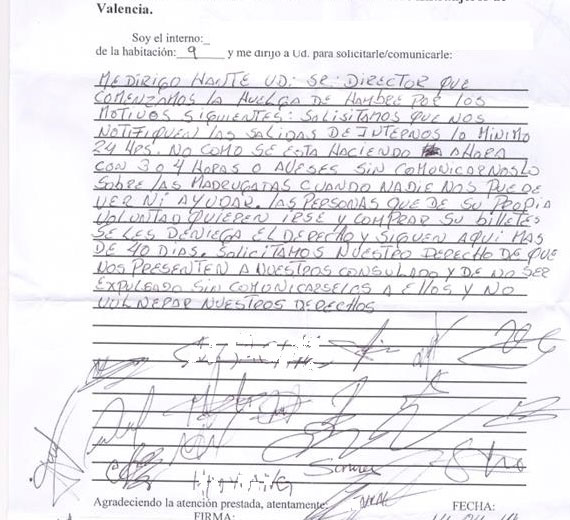 Valencia.
Soy el interno:
de la habitación: 9 y me dirijo a Ud. para solicitarle/comunicarle:
ME DIRIGO HANTE UD: SR: DIRECTOR QUE
COMENZAMOS LA HUELGA DE HAMBRE POR LOS
MOTIVOS SIGUIENTES: SOLISITAMOS QUE NOS
NOTIFIQUEN LAS SALIDAS DE INTERNOS LO MINIMO
24 HRS. NO COMO SE ESTA HACIENDO AHORA
CON 3 O 4 HORAS O AVESES SIN COMUNICARNOSLO
SOBRE LAS MADRUGATAS CUANDO NADIE NOS PUEDE
VER NI AYUDAR. LAS PERSONAS QUE DE SU PROPIA
VOLUNTAD QUIEREN IRSE Y COMPRAR SU BILLETES
SE LES DENIEGA EL DERECHO Y SIGUEN AQUI MAS
DE 40 DIAS. SOLICITAMOS NUESTRO DERECHO DE QUE
NOS PRESENTEN A NUESTROS CONSULADO Y DE NO SER
EXPULSADO SIN COMUNICARSELOS A ELLOS Y NO
VULNERAR NUESTROS DERECHOS
Agradeciendo la atención prestada, atentamente:
FIRMA: FECHA: